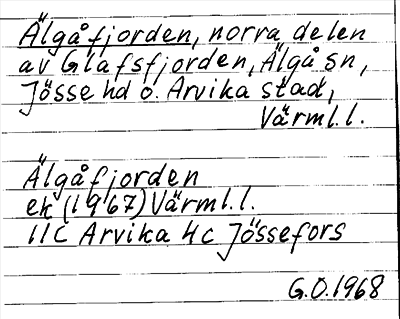 Älgåfjorden, norra delen
av Glafsfjorden, Älgå sn,
Jösse hd o. Arvika stad,
Värml.l.
Älgåfjorden
ek (1967) Värml.l.
11C Arvika 4c Jössefors
G.O.1968